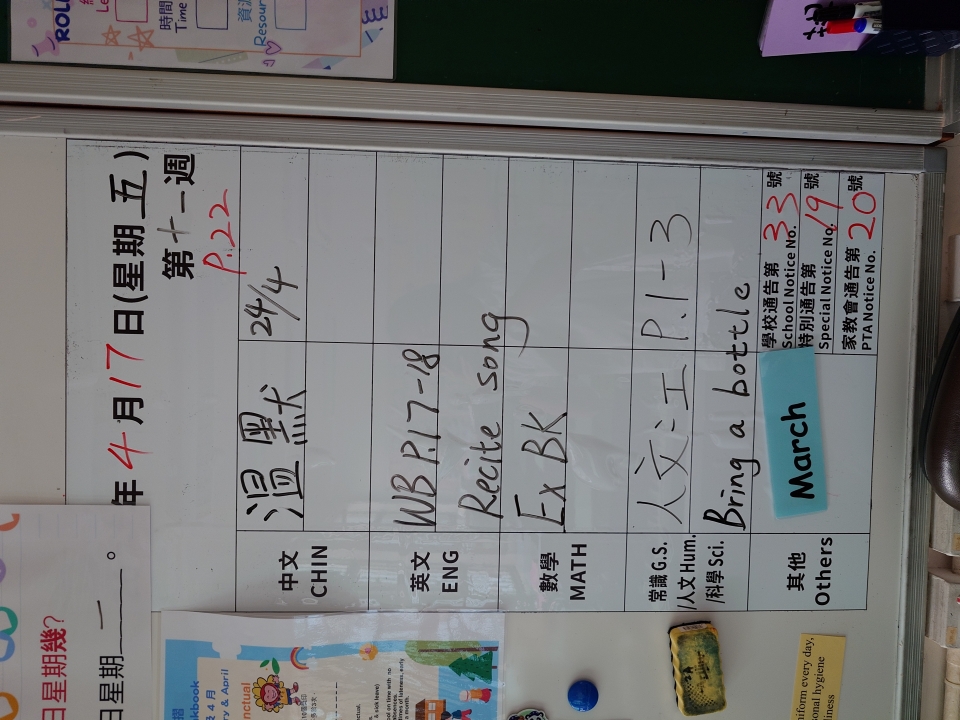 年4月17日(星期五)
第十一週
P.22
中文
CHIN
溫默 24/4
英文
ENG
WB P.17-18
Recite song
數學
MATH
Ex BK
常識 G.S.
/人文 Hum.
/科學 Sci.
人文:工 P.1-3
Bring a bottle
其他
Others
March
學校通告第 33 號
School Notice No.
特別通告第 19 號
Special Notice No.
家教會通告第 20 號
PTA Notice No.
日星期幾?
日星期一。
時間
Time
Resour
niform every day,
sonal hygiene
liness